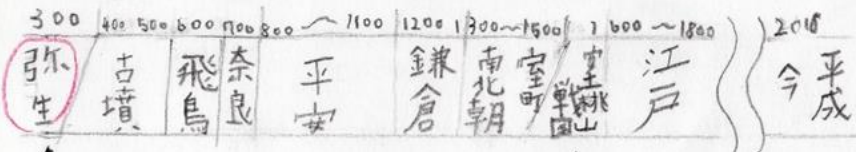 300 400 500 600 700 800 〜 1100 1200 1300〜1500 1600 〜1800 2018
弥生 古墳 飛鳥 奈良 平安 鎌倉 南北朝 室町 戦国 桃山 江戸 今 平成